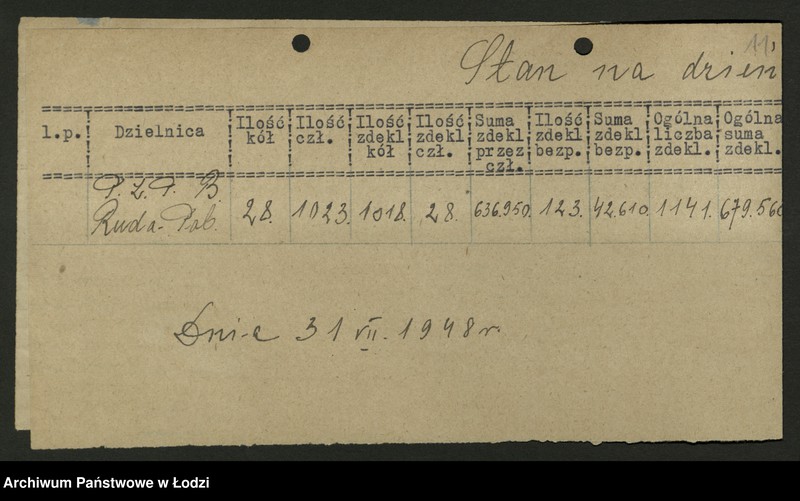 11
Stan na dzień
l.p. Dzielnica Ilość kół Ilość czł. Ilość zdekl kół Ilość zdekl czł. Suma zdekl przez czł. Ilość zdekl bezp. Suma zdekl bezp. Ogólna liczba zdekl. Ogólna suma zdekl.
P. Z. P. B.
Ruda-Pab. 28. 1023. 1018. 28. 636.950. 123. 42.610. 1141. 679.560
Dnia 31 VII. 1948 r.
Archiwum Państwowe w Łodzi